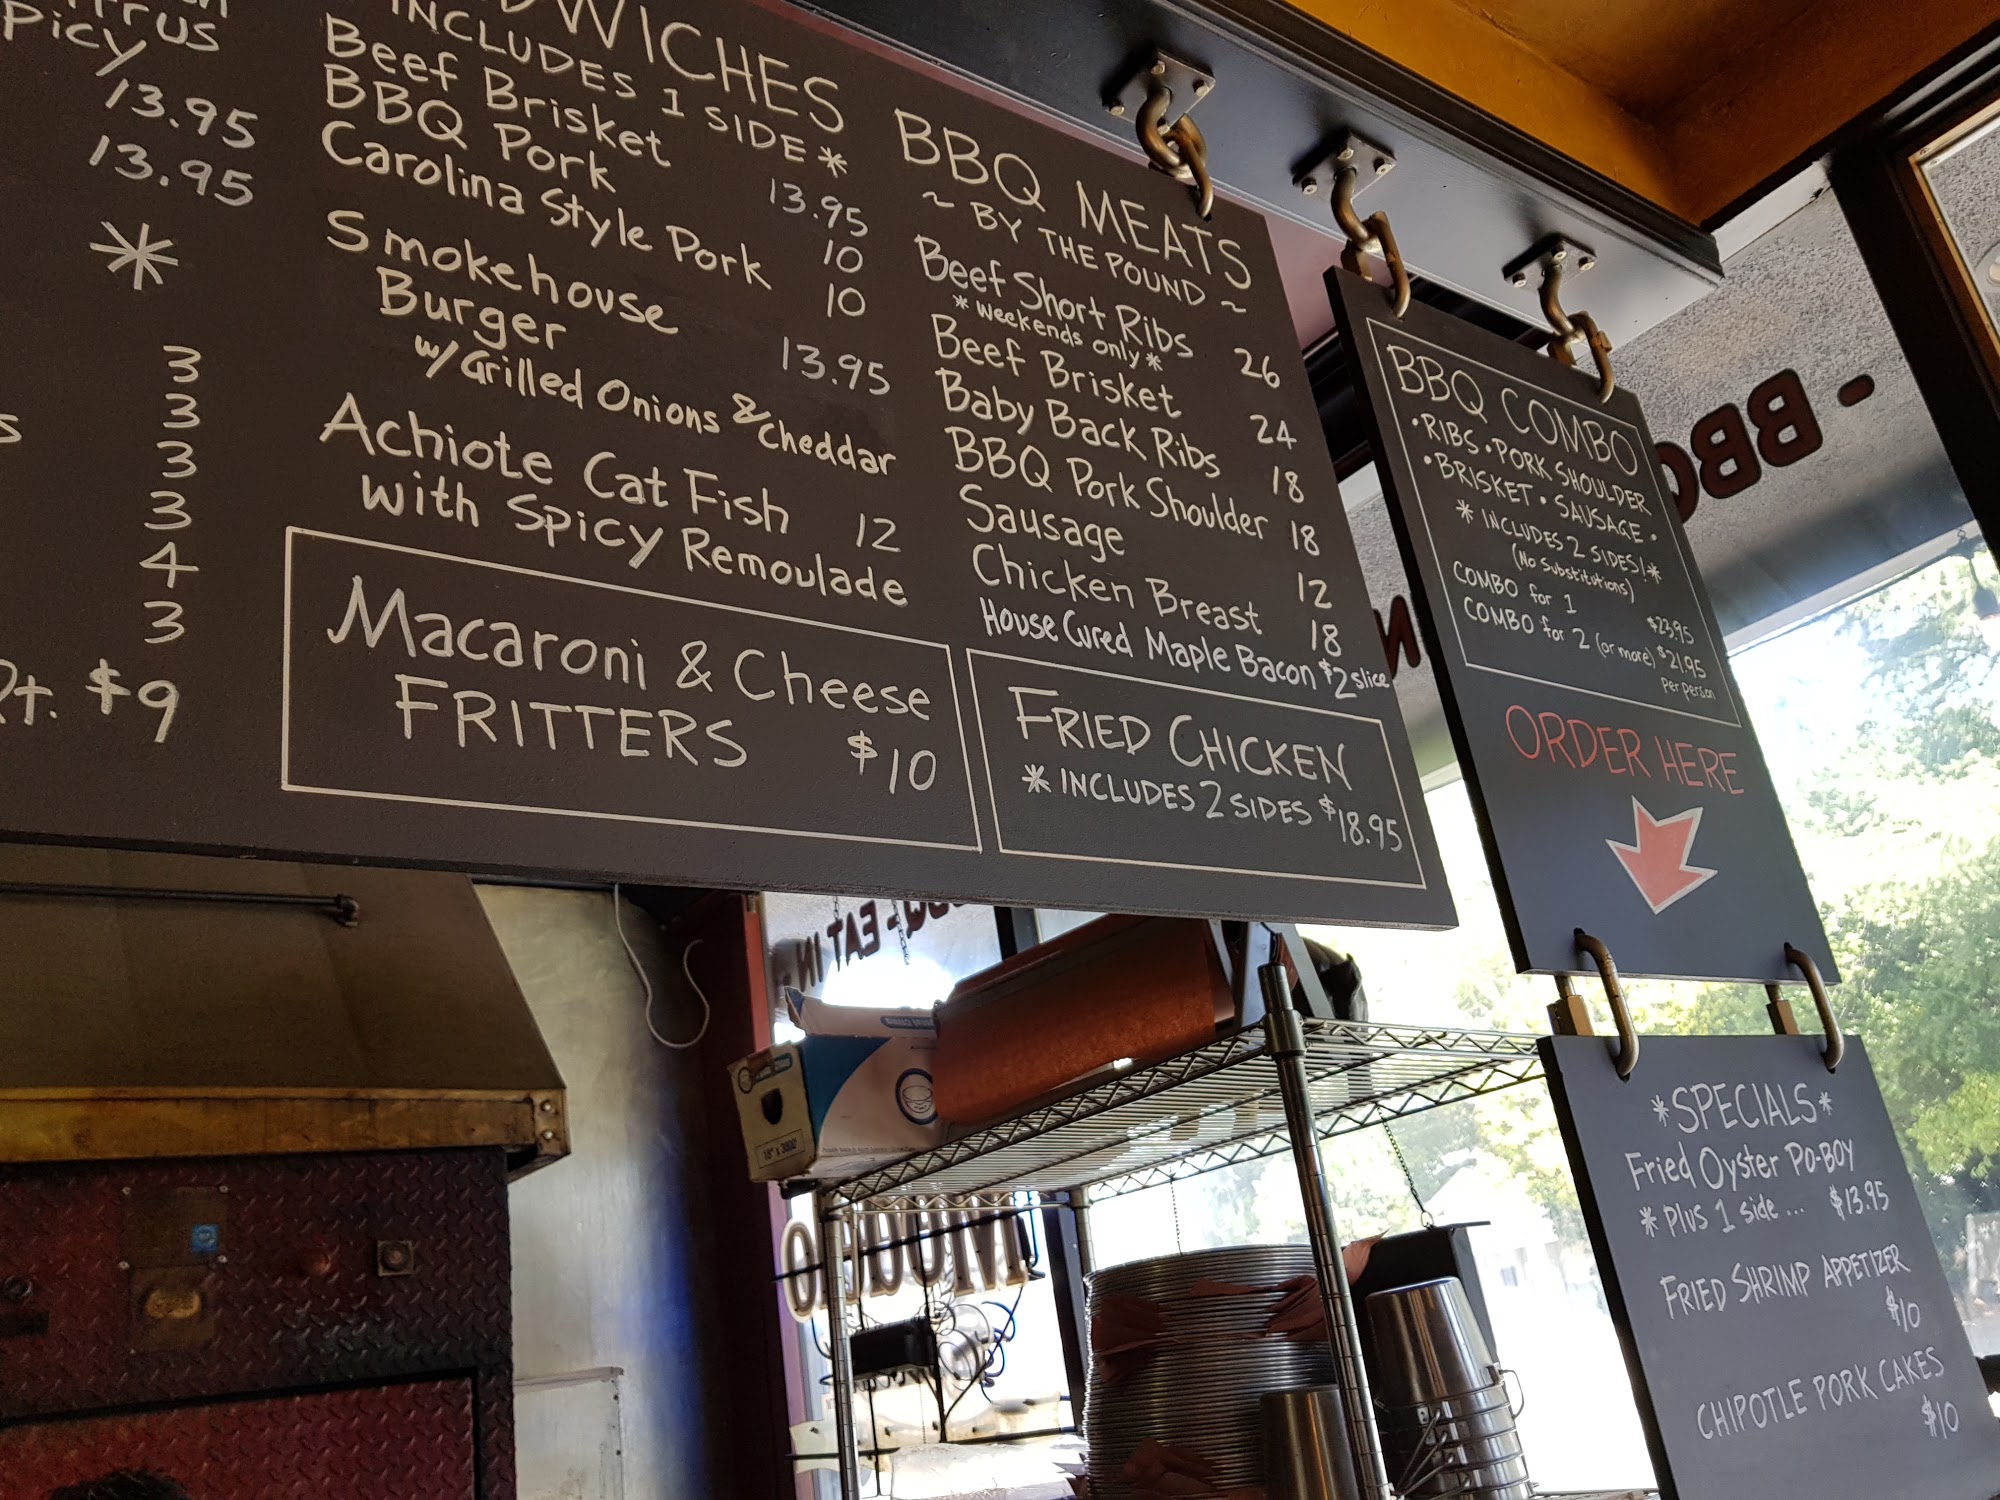 rus
picy
13.95
13.95
*
3
3
3
3
4
3
$9
WICHES
INCLUDES 1 SIDE *
Beef Brisket 13.95
BBQ Pork 10
Carolina Style Pork 10
Smokehouse
Burger 13.95
w/Grilled Onions & Cheddar
Achiote Cat Fish 12
with Spicy Remoulade
Macaroni & Cheese
FRITTERS $10
BBQ MEATS
~ BY THE POUND ~
Beef Short Ribs 26
* weekends only *
Beef Brisket 24
Baby Back Ribs 18
BBQ Pork Shoulder 18
Sausage 12
Chicken Breast 18
House Cured Maple Bacon $2 slice
FRIED CHICKEN
* INCLUDES 2 SIDES $18.95
BBQ COMBO
• RIBS • PORK SHOULDER
• BRISKET • SAUSAGE •
* INCLUDES 2 SIDES! *
(No Substitutions)
COMBO for 1 $23.95
COMBO for 2 (or more) $21.95
per person
ORDER HERE
*SPECIALS*
Fried Oyster Po-Boy
* plus 1 side ... $13.95
FRIED SHRIMP APPETIZER
$10
CHIPOTLE PORK CAKES
$10
- BBQ
- EAT IN -
MUCHO